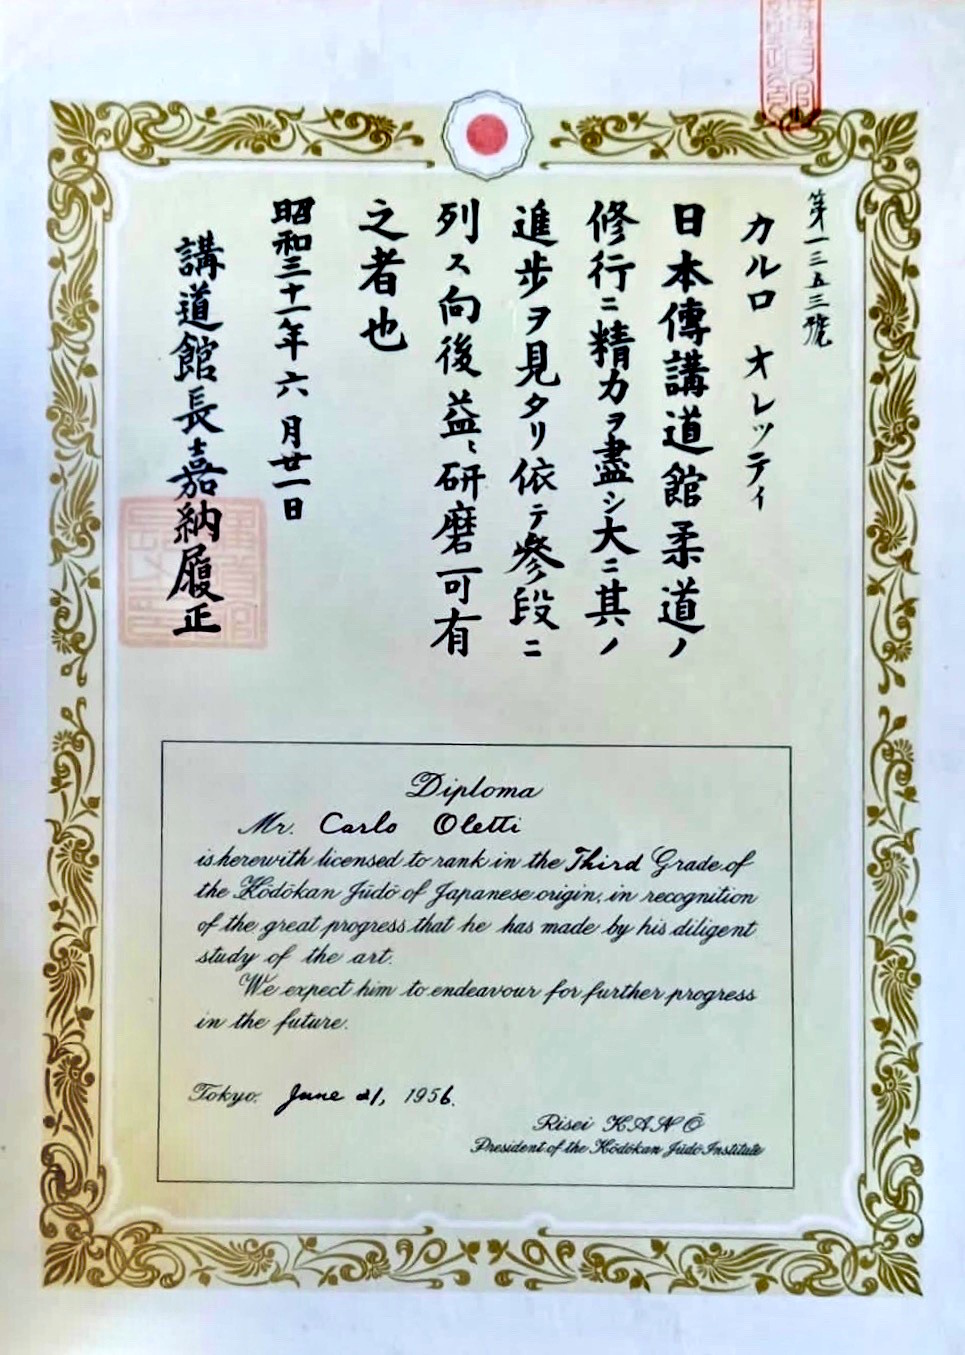 第一三五三號
カルロ オレッティ
日本傳講道館柔道ノ
修行ニ精力ヲ盡シ大ニ其ノ
進步ヲ見タリ依テ參段ニ
列ス向後益〻研磨可有
之者也
昭和三十一年六月廿一日
講道館長嘉納履正
Diploma
Mr. Carlo Oletti
is herewith licensed to rank in the Third Grade of
the Kōdōkan Jūdō of Japanese origin, in recognition
of the great progress that he has made by his diligent
study of the art.
We expect him to endeavour for further progress
in the future.
Tokyo. June 21, 1956.
Risei KANŌ
President of the Kōdōkan Jūdō Institute